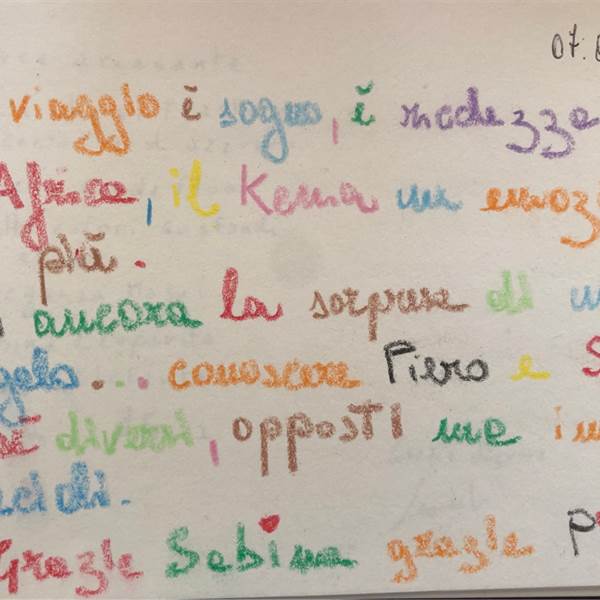 07.
viaggio è sogno, è
Africa, il Kenia un
più.
ancora la sorpresa di
conoscere Piero e
diversi, opposti ma
Grazie Sabina grazie